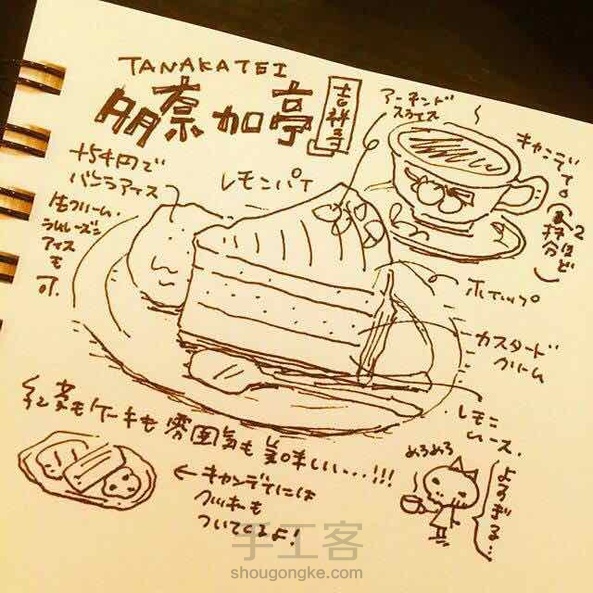 TANAKATEI
吉祥寺
アーモンド
スライス
レモンパイ
キャンディ
2
円で
バニラアイス
生クリーム・
ラムレーズン
アイス
も
可.
ホイップ
カスタード
クリーム
レモン
ムース.
紅茶もケーキも雰囲気も美味しい...!!!
めろめろ
よすぎる...
←キャンディには
クッキーも
ついてくるよ!
手工客
shougongke.com